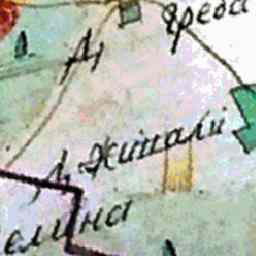 греба
Д.
Д. Житали
елина